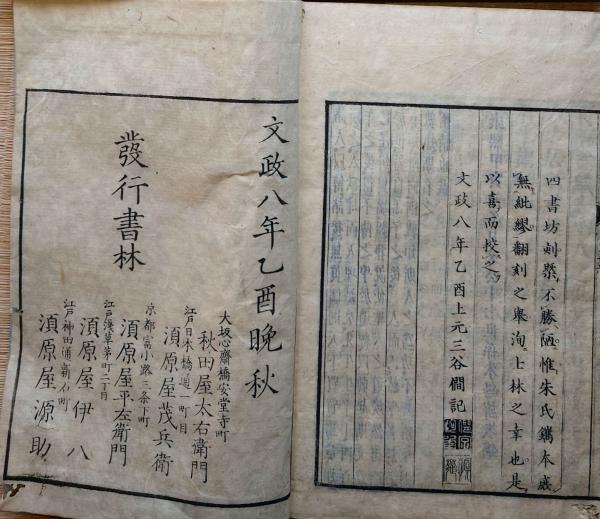 四書坊刻槩不勝陋惟朱氏鐫本庶
無紕繆翻刻之舉洵士林之幸也是
以喜而校之
文政八年乙酉上元三谷僩記
文政八年乙酉晩秋
發行書林
大坂心齋橋安堂寺町
秋田屋太右衞門
江戸日本橋通一町目
須原屋茂兵衞
京都富小路三条下町
須原屋平左衞門
江戸淺草茅町二丁目
須原屋伊八
江戸神田通新石町
須原屋源助